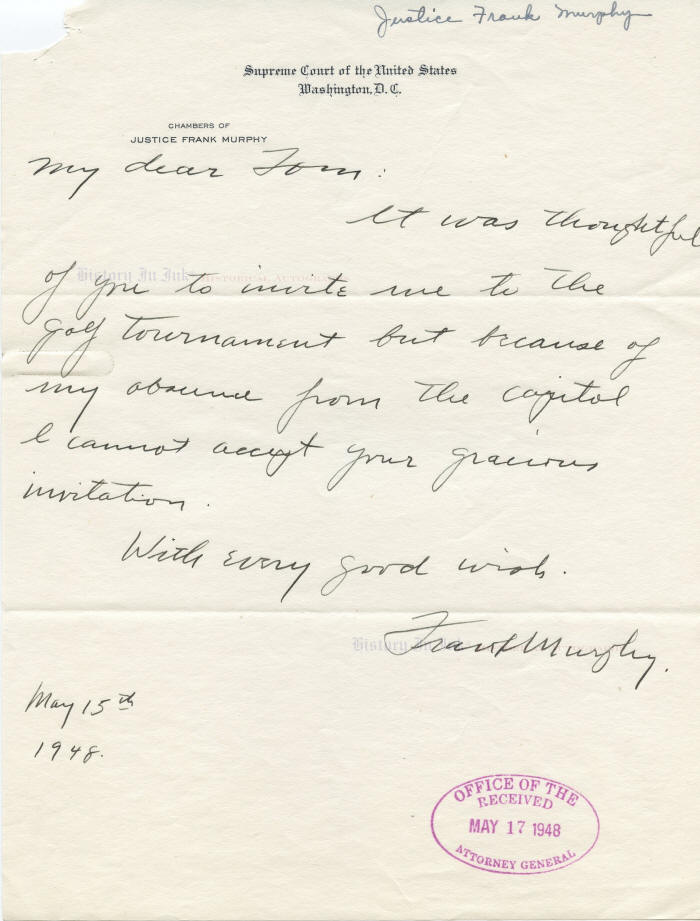 Justice Frank Murphy
Supreme Court of the United States
Washington, D.C.
CHAMBERS OF
JUSTICE FRANK MURPHY
My dear Tom:
It was thoughtful
History In Ink HISTORICAL AUTOGRAPHS
of you to invite me to the
golf tournament but because of
my absence from the capitol
I cannot accept your gracious
invitation.
With every good wish.
History In Ink
Frank Murphy.
May 15th
1948.
OFFICE OF THE
RECEIVED
MAY 17 1948
ATTORNEY GENERAL